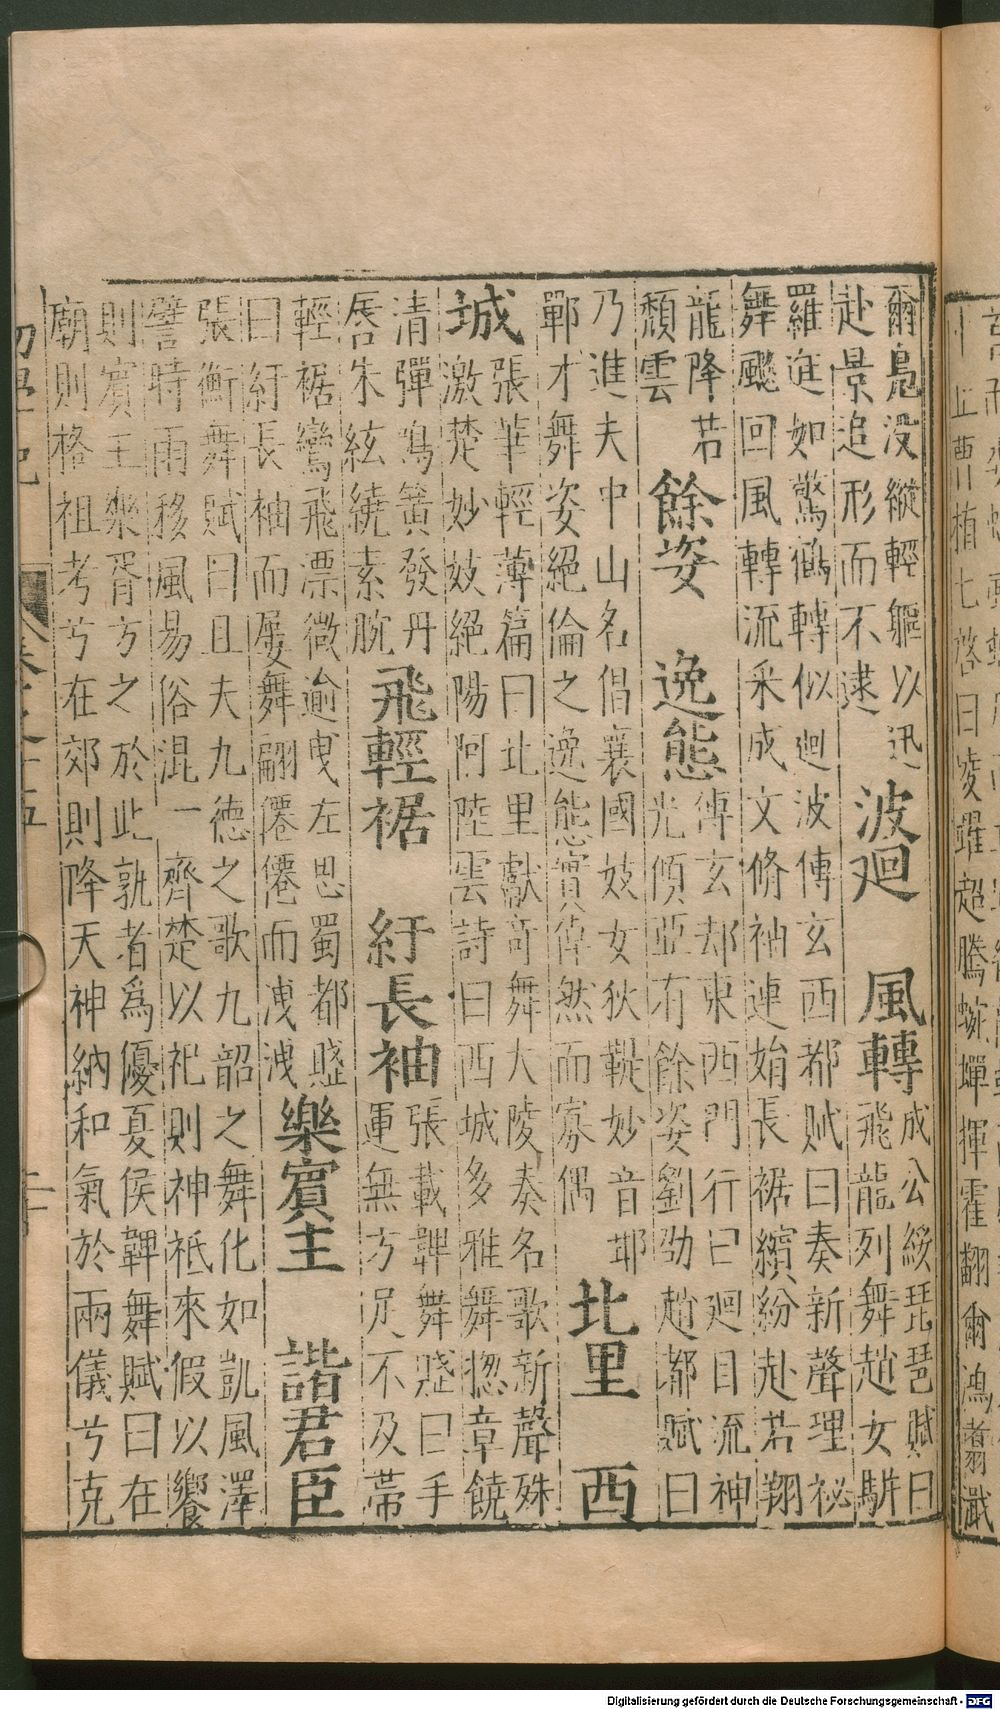 丘曹植七啓曰陵躍超騰蜿蟬揮霍翻爾鴻翥濈
爾鳧没縱輕軀以迅
赴景追形而不逮
波廻　風轉
成公綏琵琶賦曰
飛龍列舞趙女駢
羅進如驚鶴轉似廻波傅玄西都賦曰奏新聲理祕
舞飈回風轉流采成文脩袖連㛂長裾繽紛赴若翔
龍降若
頹雲
餘姿　逸態
傅玄却東西門行曰廻目流神
光傾亞有餘姿劉劭趙都賦曰
乃進夫中山名倡襄國妓女狄鞮妙音邯
鄲才舞姿絕倫之逸態實偉然而寡偶
北里　西
城
張華輕薄篇曰北里獻奇舞大陵奏名歌新聲殊
激楚妙妓絕陽阿陸雲詩曰西城多雅舞惣章饒
清彈鳴簧發丹
唇朱絃繞素腕
飛輕裾　紆長袖
張載鞞舞賤曰手
運無方足不及蔕
輕裾鸞飛漂微逾曳左思蜀都賤
曰紆長袖而屢舞翩僊僊而洩洩
樂賓主　諧君臣
張衡舞賦曰且夫九德之歌九韶之舞化如凱風澤
譬時雨移風易俗混一齊楚以祀則神祗來假以饗
則賓王樂胥方之於此孰者爲優夏侯鞞舞賦曰在
廟則格祖考兮在郊則降天神納和氣於兩儀兮克
Digitalisierung gefördert durch die Deutsche Forschungsgemeinschaft - DFG